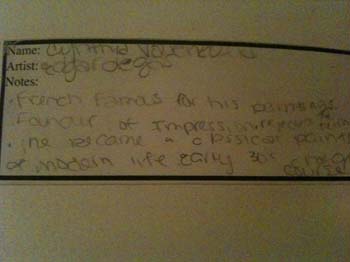 Name: Cynthia
Artist: edgar degas
Notes:
• French famous for his paintings
Founder of Impression
• he became a classical painter
of modern life early 30s change
course